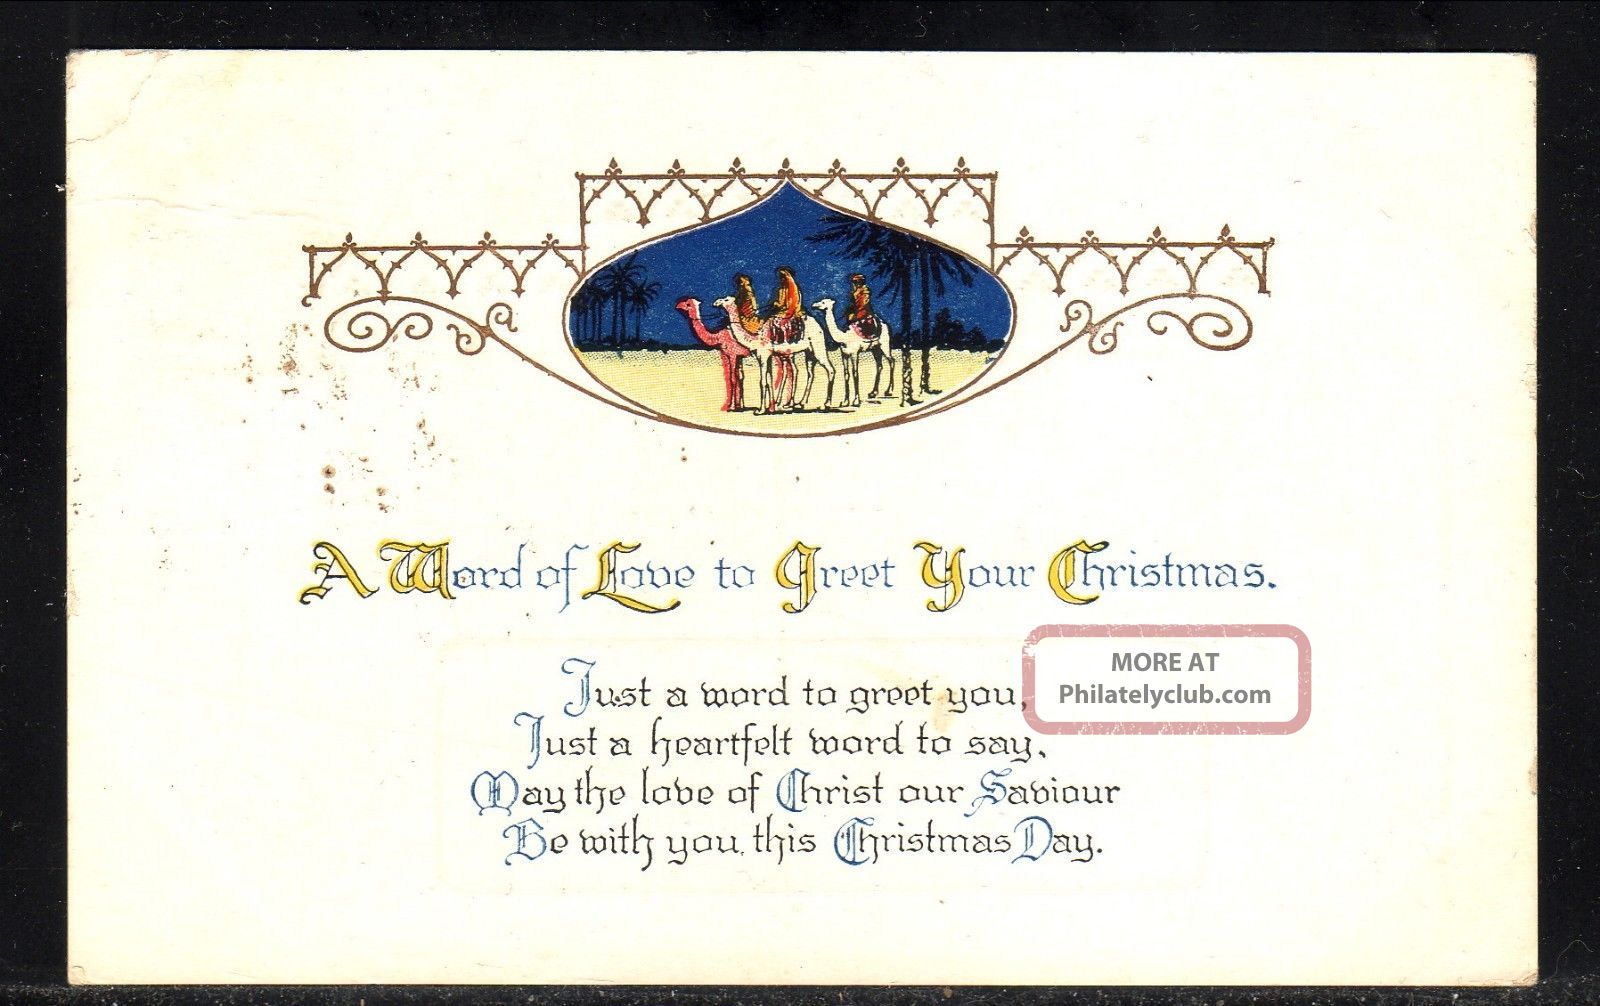 A Word of Love to Greet Your Christmas.
MORE AT
Philatelyclub.com
Just a word to greet you,
Just a heartfelt word to say,
May the love of Christ our Saviour
Be with you, this Christmas Day.